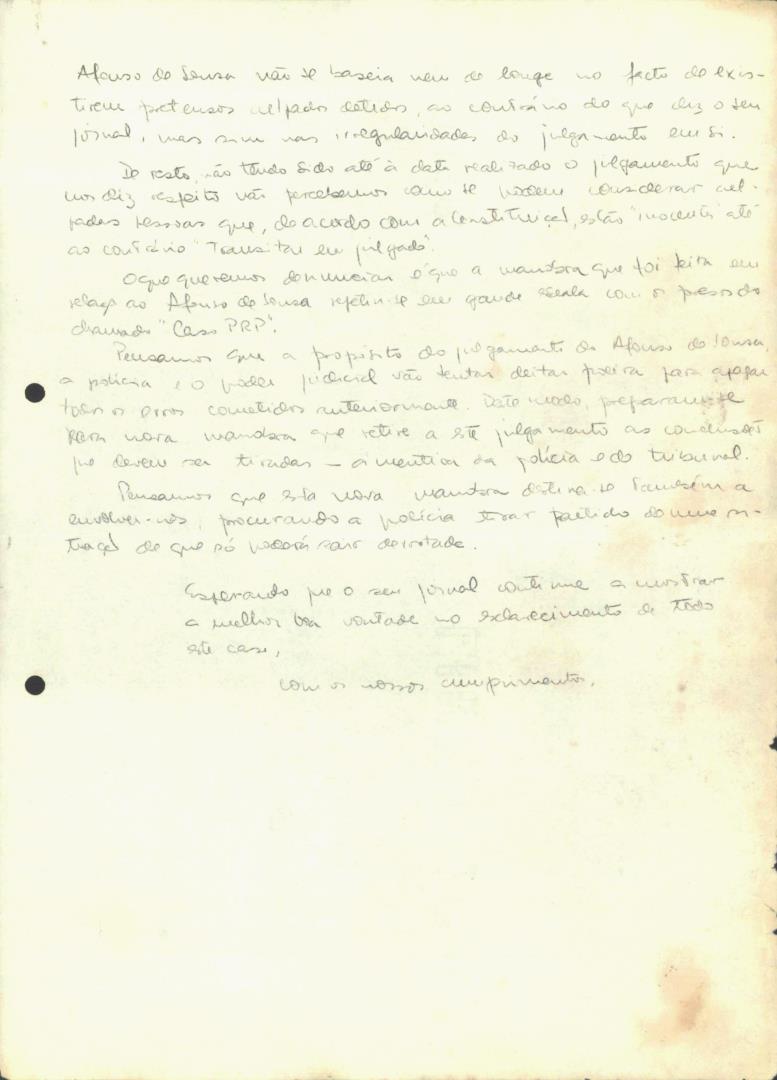 Afonso de Sousa não se baseia nem de longe no facto de exis-
tirem pretensos culpados detidos, ao contrário do que diz o seu
jornal, mas sim nas irregularidades do julgamento em si.
De resto, não tendo sido até à data realizado o julgamento que
nos diz respeito não percebemos como se podem considerar cul-
padas pessoas que, de acordo com a Constituição, estão "inocentes" até
ao contrário "transitar em julgado".
O que queremos denunciar é que a manobra que foi feita em
relação ao Afonso de Sousa repetir-se em grande escala com os presos do
chamado "Caso PRP".
Pensamos que a propósito do julgamento do Afonso de Sousa,
a polícia e o poder judicial vão tentar deitar poeira para apagar
todos os erros cometidos anteriormente. Deste modo, preparam-se
para nova manobra que retire a este julgamento as conclusões
que devem ser tiradas — a mentira da polícia e do tribunal.
Pensamos que esta nova manobra destina-se também a
envolver-nos, procurando a polícia tirar partido de uma si-
tuação de que só poderá sair derrotada.
Esperando que o seu jornal continue a mostrar
a melhor boa vontade no esclarecimento de todo
este caso,
com os nossos cumprimentos.